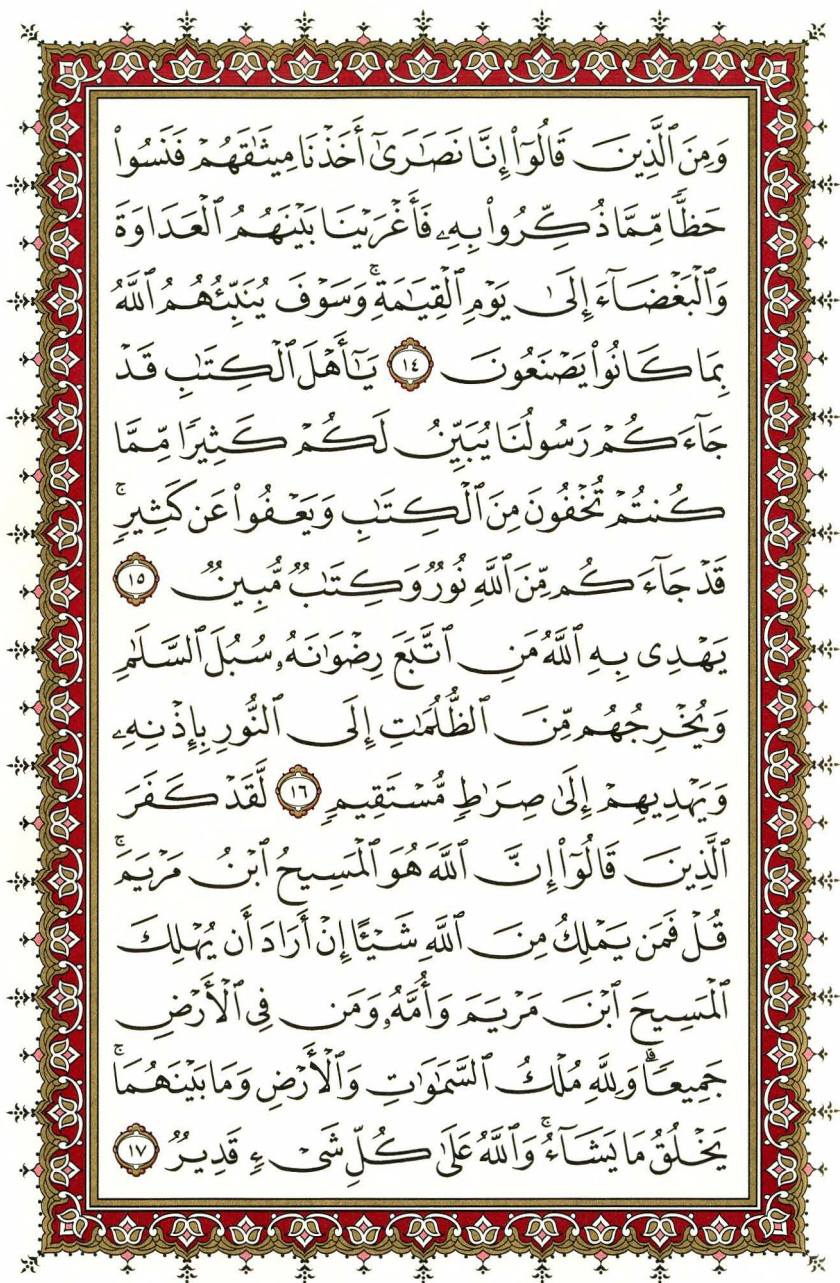 وَمِنَ ٱلَّذِينَ قَالُوٓا۟ إِنَّا نَصَٰرَىٰٓ أَخَذْنَا مِيثَٰقَهُمْ فَنَسُوا۟
حَظًّا مِّمَّا ذُكِّرُوا۟ بِهِۦ فَأَغْرَيْنَا بَيْنَهُمُ ٱلْعَدَاوَةَ
وَٱلْبَغْضَآءَ إِلَىٰ يَوْمِ ٱلْقِيَٰمَةِ ۚ وَسَوْفَ يُنَبِّئُهُمُ ٱللَّهُ
بِمَا كَانُوا۟ يَصْنَعُونَ ١٤ يَٰٓأَهْلَ ٱلْكِتَٰبِ قَدْ
جَآءَكُمْ رَسُولُنَا يُبَيِّنُ لَكُمْ كَثِيرًا مِّمَّا
كُنتُمْ تُخْفُونَ مِنَ ٱلْكِتَٰبِ وَيَعْفُوا۟ عَن كَثِيرٍ ۚ
قَدْ جَآءَكُم مِّنَ ٱللَّهِ نُورٌ وَكِتَٰبٌ مُّبِينٌ ١٥
يَهْدِى بِهِ ٱللَّهُ مَنِ ٱتَّبَعَ رِضْوَٰنَهُۥ سُبُلَ ٱلسَّلَٰمِ
وَيُخْرِجُهُم مِّنَ ٱلظُّلُمَٰتِ إِلَى ٱلنُّورِ بِإِذْنِهِۦ
وَيَهْدِيهِمْ إِلَىٰ صِرَٰطٍ مُّسْتَقِيمٍ ١٦ لَّقَدْ كَفَرَ
ٱلَّذِينَ قَالُوٓا۟ إِنَّ ٱللَّهَ هُوَ ٱلْمَسِيحُ ٱبْنُ مَرْيَمَ ۚ
قُلْ فَمَن يَمْلِكُ مِنَ ٱللَّهِ شَيْـًٔا إِنْ أَرَادَ أَن يُهْلِكَ
ٱلْمَسِيحَ ٱبْنَ مَرْيَمَ وَأُمَّهُۥ وَمَن فِى ٱلْأَرْضِ
جَمِيعًا ۗ وَلِلَّهِ مُلْكُ ٱلسَّمَٰوَٰتِ وَٱلْأَرْضِ وَمَا بَيْنَهُمَا ۚ
يَخْلُقُ مَا يَشَآءُ ۚ وَٱللَّهُ عَلَىٰ كُلِّ شَىْءٍ قَدِيرٌ ١٧